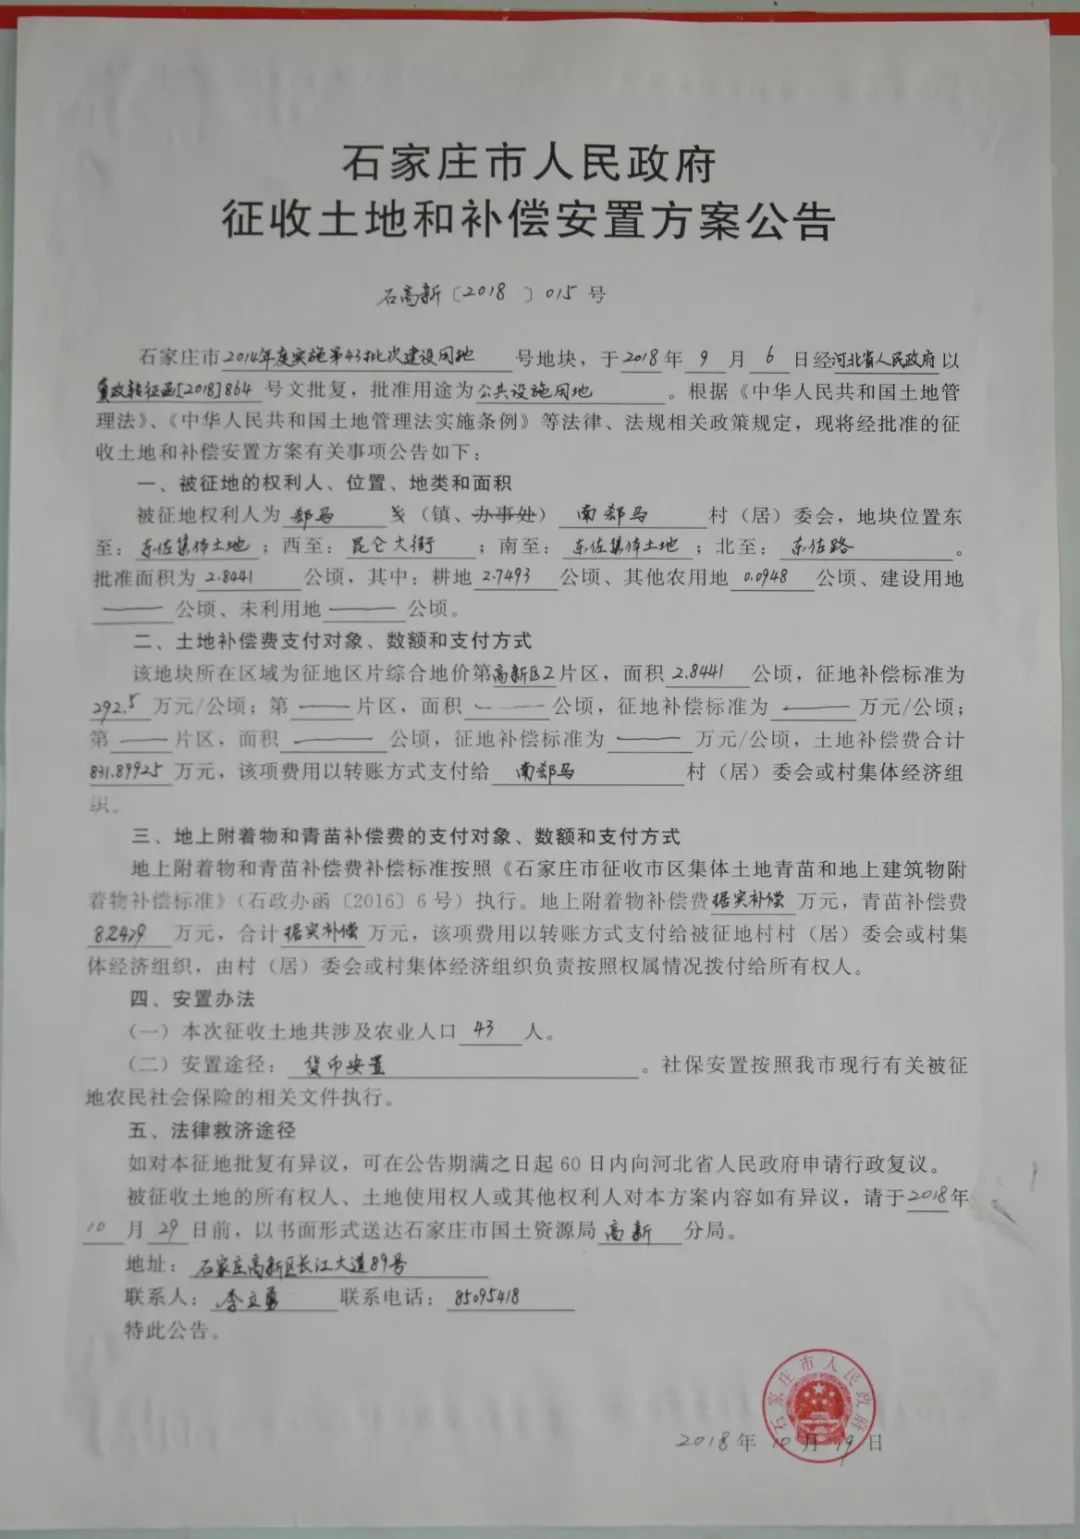 石家庄市人民政府
征收土地和补偿安置方案公告
石高新〔2018〕015号
石家庄市2014年度实施第43批次建设用地号地块，于2018年9月6日经河北省人民政府以
冀政转征函[2018]864号文批复，批准用途为公共设施用地。根据《中华人民共和国土地管
理法》、《中华人民共和国土地管理法实施条例》等法律、法规相关政策规定，现将经批准的征
收土地和补偿安置方案有关事项公告如下：
一、被征地的权利人、位置、地类和面积
被征地权利人为郄马（镇、办事处）南郄马村（居）委会，地块位置东
至：东佐集体土地；西至：昆仑大街；南至：东佐集体土地；北至：东佐路。
批准面积为2.8441公顷，其中：耕地2.7493公顷、其他农用地0.0948公顷、建设用地
——公顷、未利用地——公顷。
二、土地补偿费支付对象、数额和支付方式
该地块所在区域为征地区片综合地价第高新区2片区，面积2.8441公顷，征地补偿标准为
292.5万元/公顷；第——片区，面积——公顷，征地补偿标准为——万元/公顷；
第——片区，面积——公顷，征地补偿标准为——万元/公顷，土地补偿费合计
831.89925万元，该项费用以转账方式支付给南郄马村（居）委会或村集体经济组
织。
三、地上附着物和青苗补偿费的支付对象、数额和支付方式
地上附着物和青苗补偿费补偿标准按照《石家庄市征收市区集体土地青苗和地上建筑物附
着物补偿标准》（石政办函〔2016〕6号）执行。地上附着物补偿费据实补偿万元，青苗补偿费
8.2479万元，合计据实补偿万元，该项费用以转账方式支付给被征地村村（居）委会或村集
体经济组织，由村（居）委会或村集体经济组织负责按照权属情况拨付给所有权人。
四、安置办法
（一）本次征收土地共涉及农业人口43人。
（二）安置途径：货币安置。社保安置按照我市现行有关被征
地农民社会保险的相关文件执行。
五、法律救济途径
如对本征地批复有异议，可在公告期满之日起60日内向河北省人民政府申请行政复议。
被征收土地的所有权人、土地使用权人或其他权利人对本方案内容如有异议，请于2018年
10月29日前，以书面形式送达石家庄市国土资源局高新分局。
地址：石家庄高新区长江大道89号
联系人：李立勇 联系电话：85095418
特此公告。
石家庄市人民政府
2018年10月 日